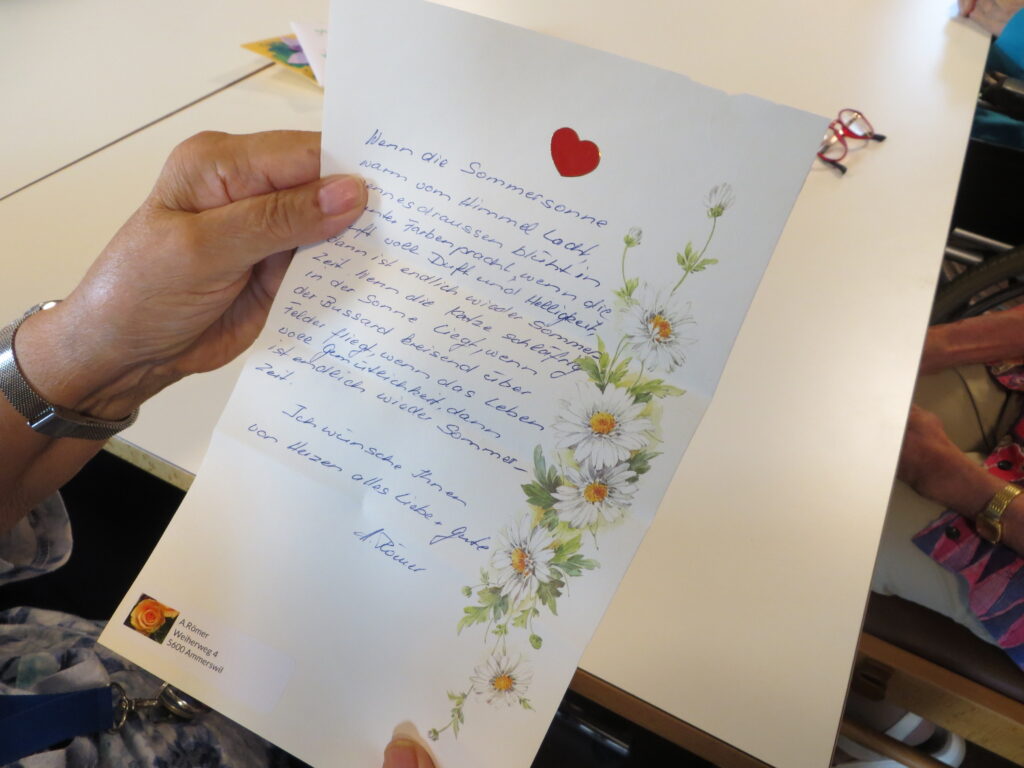 Wenn die Sommersonne
warm vom Himmel lacht
draussen blüht in
Farbenpracht, wenn die
Luft voll Duft und Helligkeit,
dann ist endlich wieder Sommer
Zeit Wenn die Katze schläfrig
in der Sonne liegt, wenn
der Bussard kreisend über
Felder fliegt, wenn das Leben
voll Gemütlichkeit, dann
ist endlich wieder Sommer-
Zeit.
Ich wünsche Ihnen
von Herzen alles Liebe + Gute
A Römer
A.Römer
Weiherweg 4
5600 Ammerswil